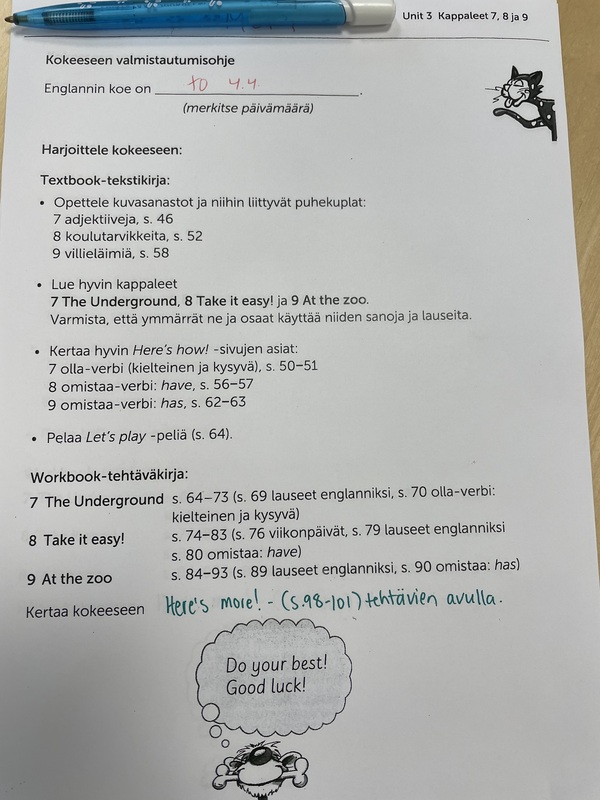 Unit 3 Kappaleet 7, 8 ja 9
Kokeeseen valmistautumisohje
Englannin koe on to 4.4.
(merkitse päivämäärä)
Harjoittele kokeeseen:
Textbook-tekstikirja:
• Opettele kuvasanastot ja niihin liittyvät puhekuplat:
7 adjektiiveja, s. 46
8 koulutarvikkeita, s. 52
9 villieläimiä, s. 58
• Lue hyvin kappaleet
7 The Underground, 8 Take it easy! ja 9 At the zoo.
Varmista, että ymmärrät ne ja osaat käyttää niiden sanoja ja lauseita.
• Kertaa hyvin Here's how! -sivujen asiat:
7 olla-verbi (kielteinen ja kysyvä), s. 50–51
8 omistaa-verbi: have, s. 56–57
9 omistaa-verbi: has, s. 62–63
• Pelaa Let's play -peliä (s. 64).
Workbook-tehtäväkirja:
7 The Underground s. 64–73 (s. 69 lauseet englanniksi, s. 70 olla-verbi:
kielteinen ja kysyvä)
8 Take it easy! s. 74–83 (s. 76 viikonpäivät, s. 79 lauseet englanniksi
s. 80 omistaa: have)
9 At the zoo s. 84–93 (s. 89 lauseet englanniksi, s. 90 omistaa: has)
Kertaa kokeeseen Here's more! - (s.98-101) tehtävien avulla.
Do your best!
Good luck!